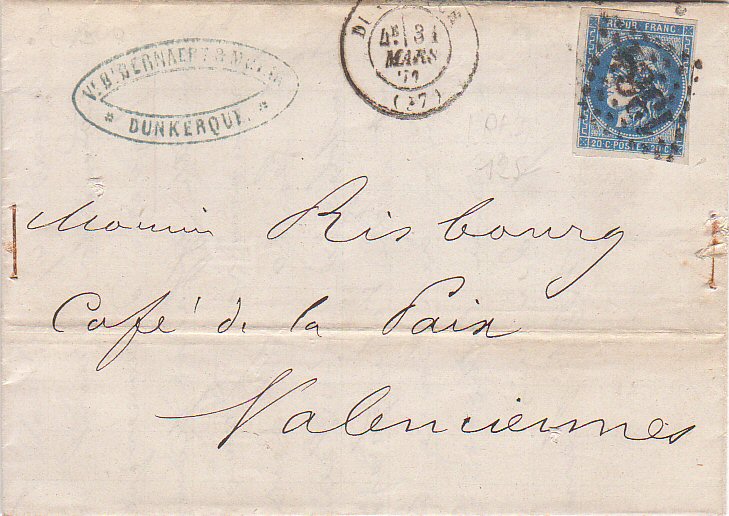 Vᵉ Bᵗ BERNAERT &
DUNKERQUE
4ᴱ 31
MARS
71
(37)
RÉPUB FRANC
20·C·POSTES·20·C
Monsieur Risbourg
Café de la Paix
Valenciennes